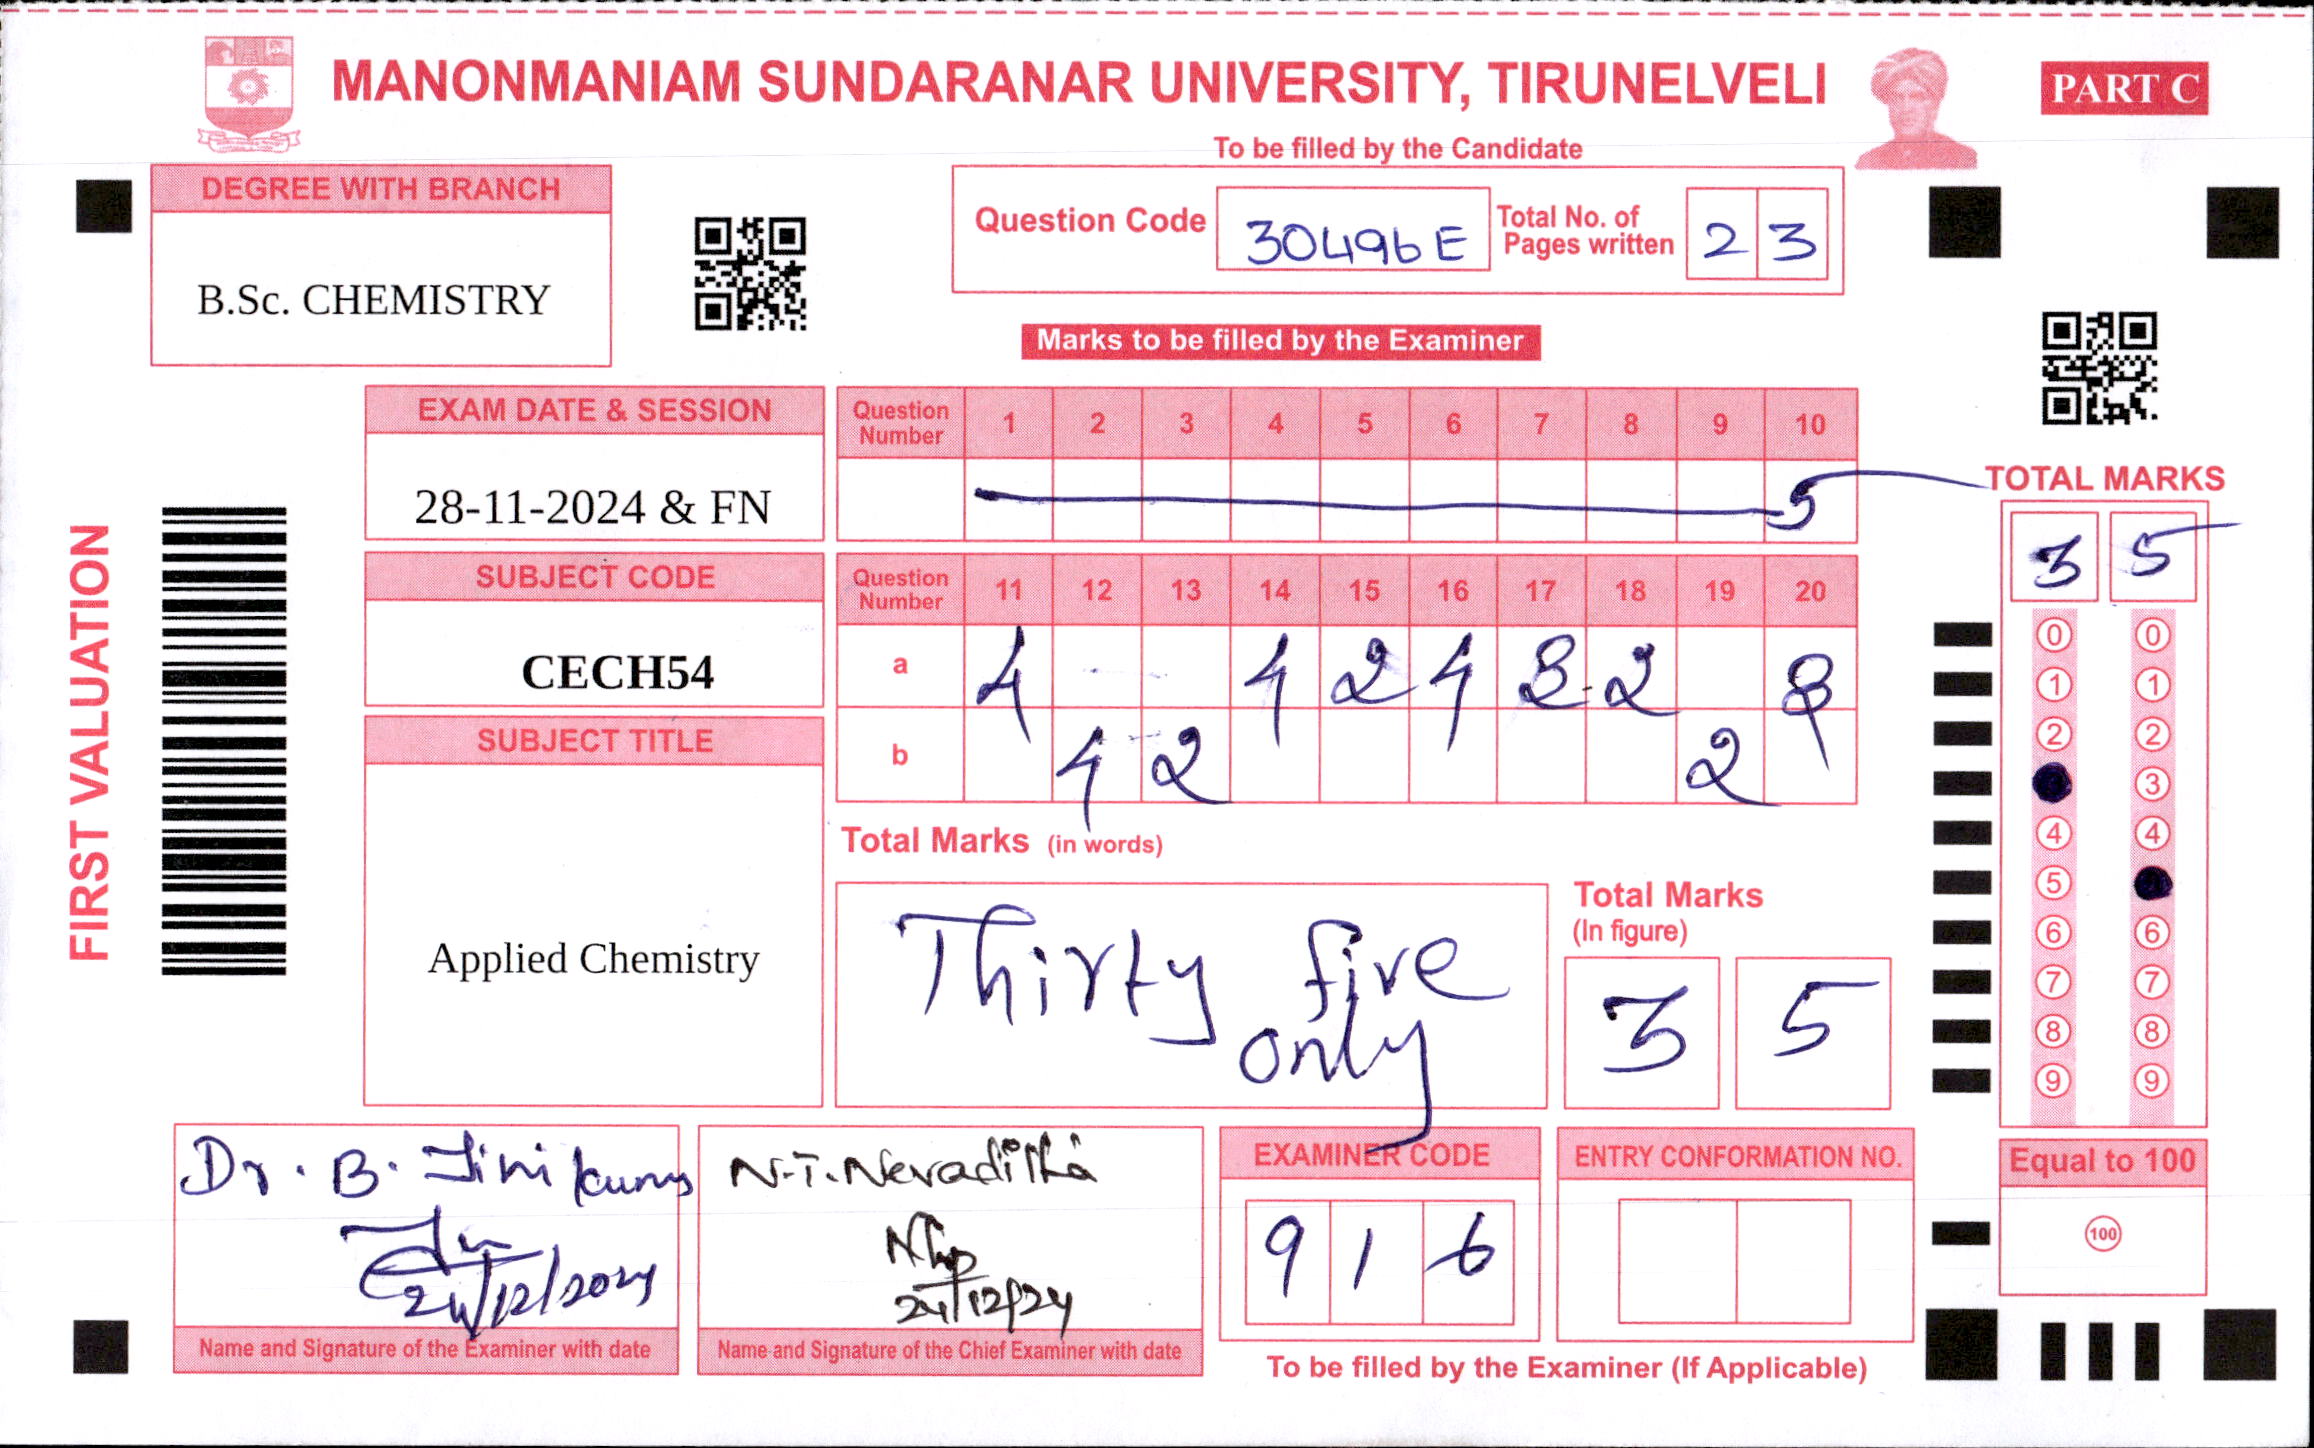 MANONMANIAM SUNDARANAR UNIVERSITY, TIRUNELVELI
PART C
To be filled by the Candidate
DEGREE WITH BRANCH
B.Sc. CHEMISTRY
Question Code 30496E Total No. of Pages written 2 3
Marks to be filled by the Examiner
EXAM DATE & SESSION
28-11-2024 & FN
Question Number 1 2 3 4 5 6 7 8 9 10
5
SUBJECT CODE
CECH54
Question Number 11 12 13 14 15 16 17 18 19 20
a 4 4 2 4 3 2
b 4 2 2
SUBJECT TITLE
Applied Chemistry
Total Marks (in words)
Thirty five
only
Total Marks
(In figure)
3 5
FIRST VALUATION
TOTAL MARKS
3 5
0 0
1 1
2 2
3
4 4
5
6 6
7 7
8 8
9 9
Dr. B. Jini
24/12/2024
Name and Signature of the Examiner with date
N.T. Nevaditha
24/12/24
Name and Signature of the Chief Examiner with date
EXAMINER CODE
9 1 6
ENTRY CONFORMATION NO.
To be filled by the Examiner (If Applicable)
Equal to 100
100